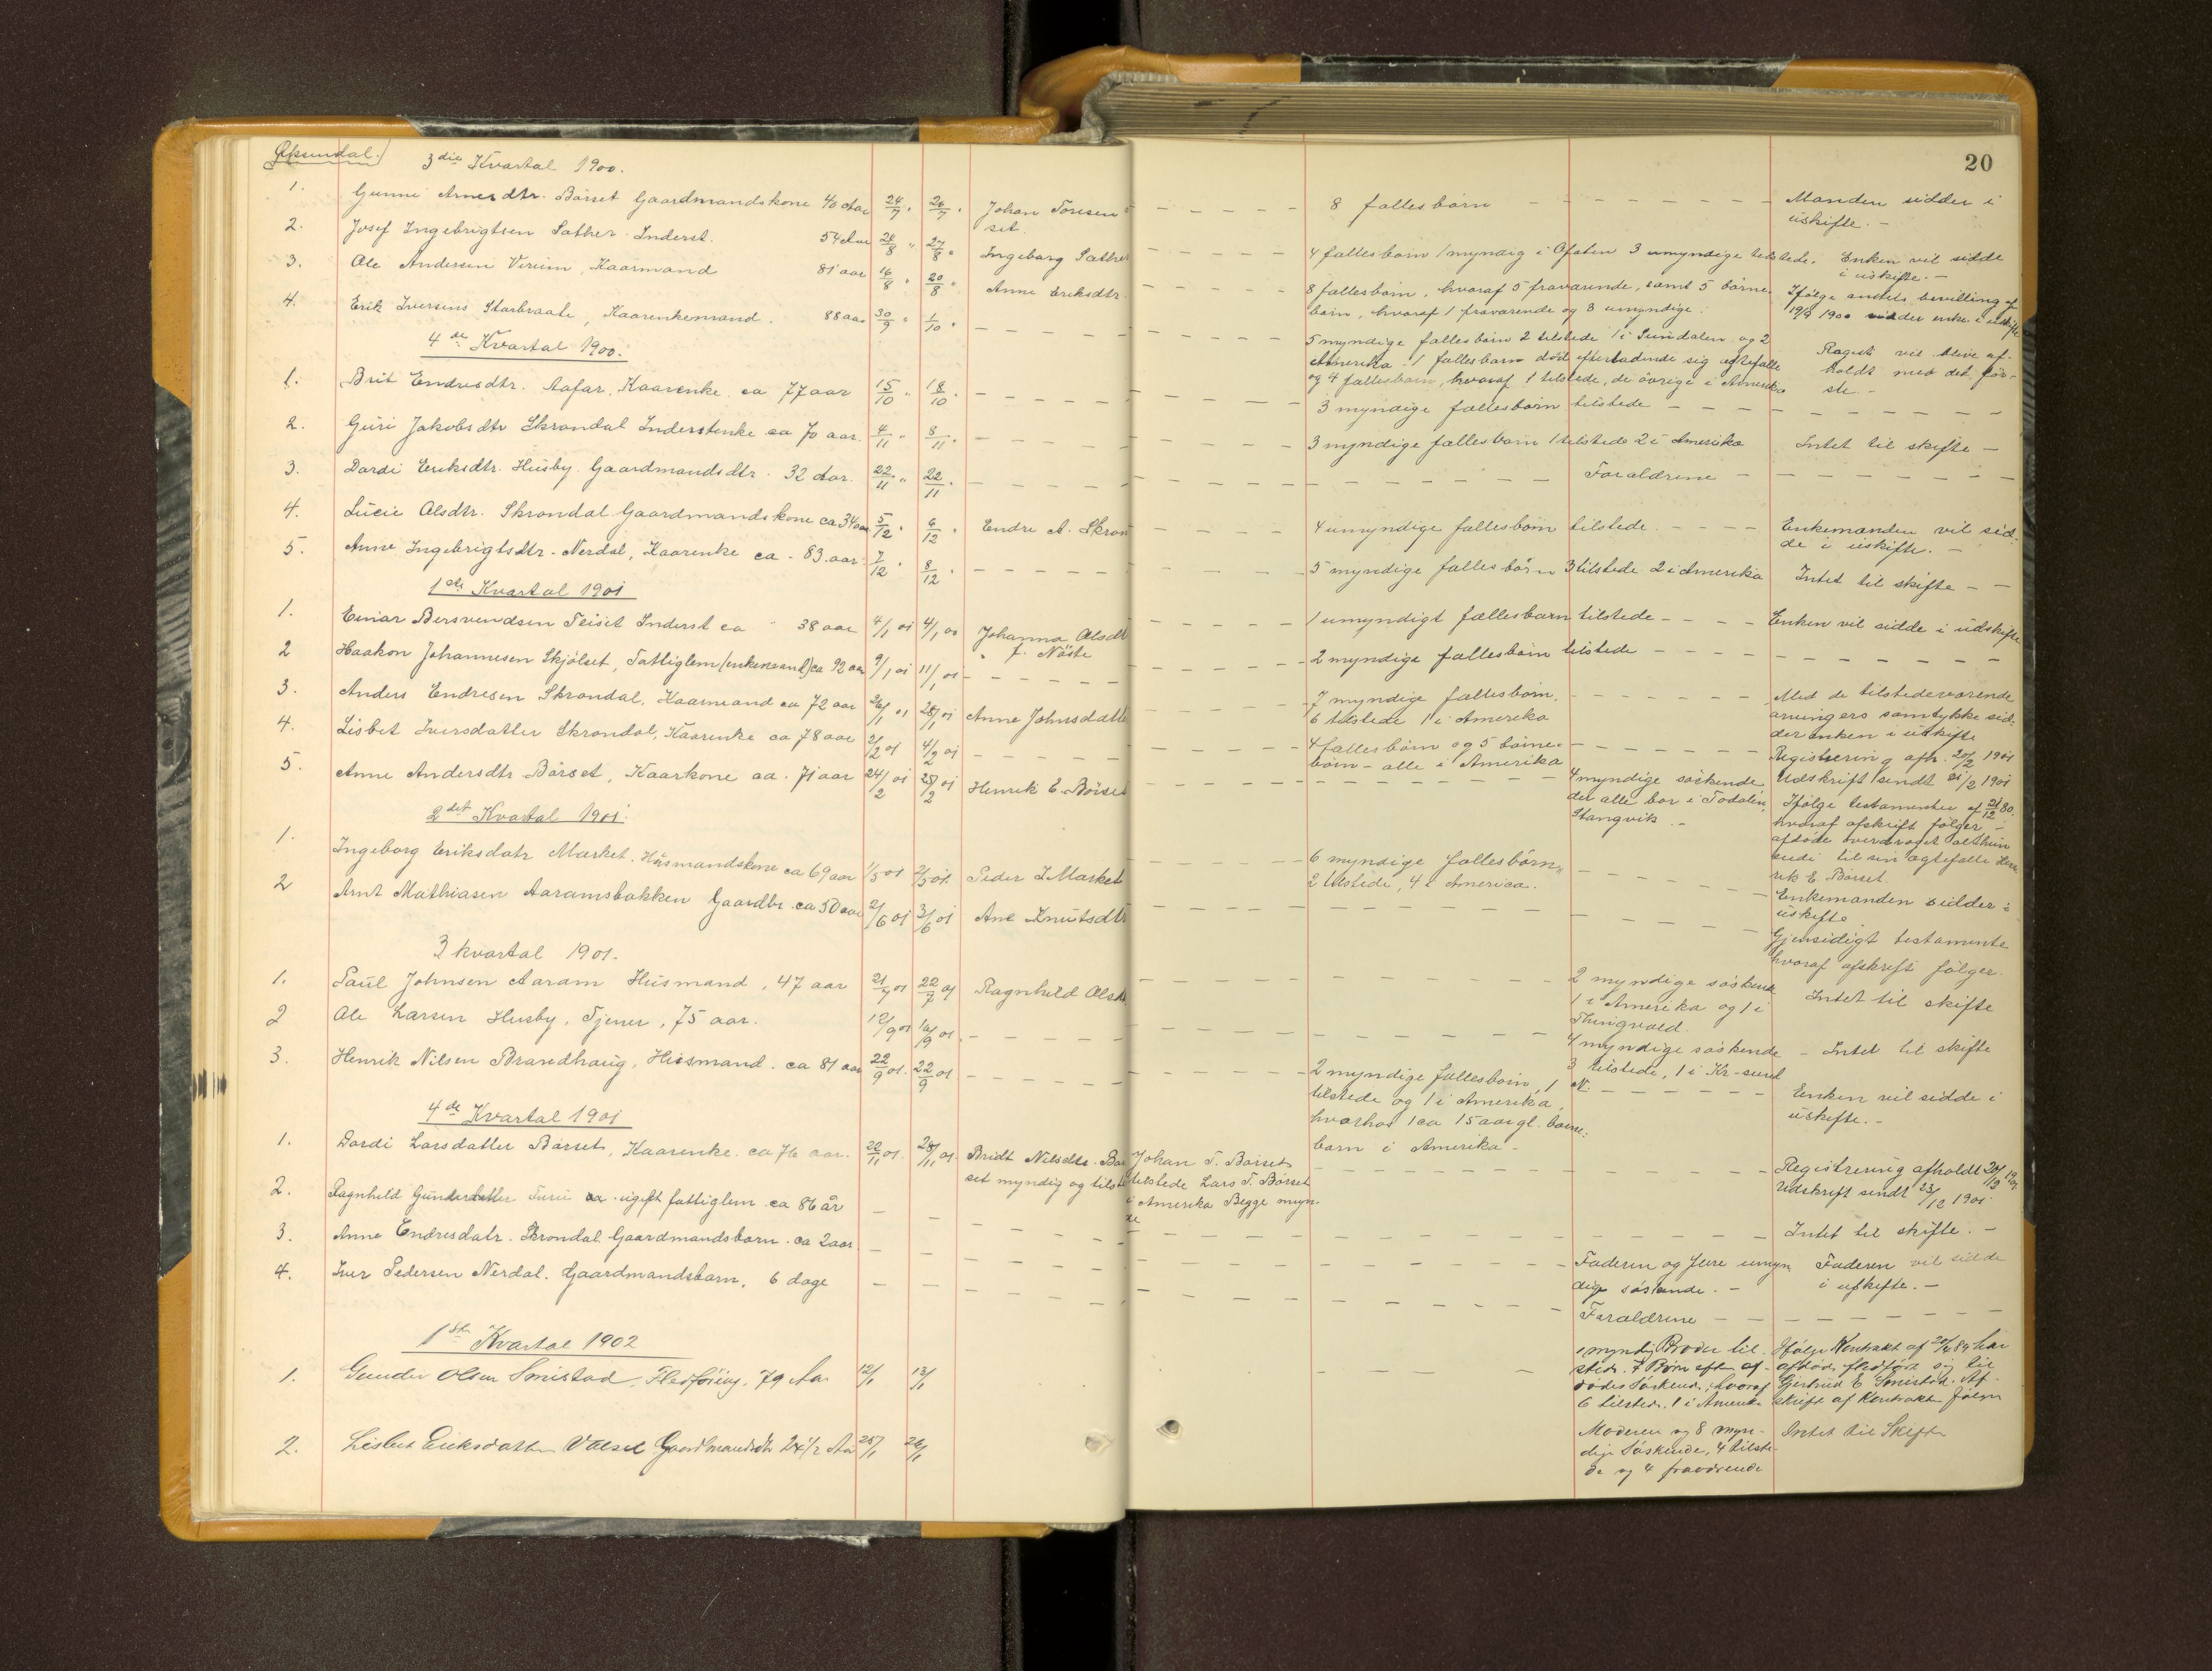 Øksendal.
20
3die Kvartal 1900.
1. Gunni Arnesdtr. Börset Gaardmandskone 40 Aar 24/7 " 26/7 " Johan Toresen - - - - - 8 fællesbörn - - - - - - Manden sidder i
set. uskifte. -
2. Josef Ingebrigtsen Sæther Inderst. 54 Aar 26/8 " 27/8 " Ingeborg Sæther - - - - 4 fællesbörn 1 myndig i Ofoten 3 umyndige tilstede. Enken vil sidde
i uskifte. -
3. Ole Andersen Virum, Kaarmand 81 aar 16/8 " 20/8 " Anne Eriksdtr. - - - - 8 fællesbörn, hvoraf 5 fraværende, samt 5 börne- Ifölge amtets bevilling af
börn, hvoraf 1 fraværende og 3 umyndige. 19/9 1900 sidder enken i uskifte
4. Erik Iversens Storbraate, Kaarenkemand. 88 aar 30/9 " 1/10 " - - - - 5 myndige fællesbörn 2 tilstede 1 i Sundalen og 2
Amerika. 1 fællesbarn död efterladende sig ægtefælle Registr vil blive af-
og 4 fællesbörn, hvoraf 1 tilstede, de övrige i Amerika holdt med det för-
ste -
4de Kvartal 1900.
1. Brit Endresdtr. Aafar, Kaarenke ca 77 aar 15/10 " 18/10 " - - - - 3 myndige fællesbörn tilstede - - - - - - -
2. Guri Jakobsdtr Skrondal Inderstenke ca 70 aar. 4/11 " 8/11 " - - - - 3 myndige fællesbörn 1 tilstede 2 i Amerika Intet til skifte -
3. Dordi Eriksdtr. Husby Gaardmandsdtr. 32 Aar. 22/11 " 22/11 " - - - - - - - - Forældrene - - - - - -
4. Lucie Olsdtr. Skrondal Gaardmandskone ca 34 aar 5/12 " 6/12 " Endre A. Skron - - - - 4 umyndige fællesbörn tilstede - - - - Enkemanden vil sid-
de i uskifte. -
5. Anne Ingebrigtsdtr. Nerdal, Kaarenke ca - 83 aar 7/12 " 8/12 " - - - - 5 myndige fællesbörn 3 tilstede 2 i Amerika Intet til skifte - -
1ste Kvartal 1901
1. Einar Bersvendsen Teiset Inderst ca " 38 aar 4/1 01 4/1 00 Johanna Olsdt - - - - 1 umyndigt fællesbarn tilstede - - - - Enken vil sidde i udskifte
" f. Näste
2 Haakon Johannesen Skjölset, Fattiglem (enkemand) ca 92 aar 9/1 01 11/1 01 - - - - 2 myndige fællesbörn tilstede - - - - - - -
3. Anders Endresen Skrondal, Kaarmand ca 72 aar 26/1 01 28/1 01 Anne Johnsdatte - - - - 7 myndige fællesbörn. - - - - - Med de tilstedeværende
6 tilstede 1 i Amerika arvingers samtykke sid-
der enken i uskifte
4. Lisbet Iversdatter Skrondal, Kaarenke ca 78 aar 2/2 01 4/2 01 - - - - 4 fællesbörn og 5 börne- - - - - - Registrering afh. 20/2 1901
börn - alle i Amerika Udskrift sendt 21/2 1901
5. Anne Andersdtr Börset, Kaarkone ca. 71 aar 24/2 01 25/2 01 Henrik E. Börset - - - - 4 myndige söskende Ifölge testamente af 21/12 80.
der alle bor i Todalen, hvoraf afskrift fölger -
Stangvik. - afdöde overdraget alt hun
eiede til sin ægtefælle Hen-
rik E. Börset.
2det Kvartal 1901.
1. Ingeborg Eriksdatr Market. Husmandskone ca 69 aar 1/5 01 2/5 01. Peder I. Market - - - - 6 myndige fællesbörn,, - - - - - Enkemanden sidder i
2 tilstede, 4 i America. uskifte
2 Arnt Mathiasen Aaramsbakken Gaardbr. ca 50 aar 2/6 01 3/6 01 Ane Knutsdtr - - - - - - - - - Gjensidigt testamente
hvoraf afskrift fölger.
3 kvartal 1901.
1. Paul Johnsen Aaram Husmand, 47 aar 21/7 01 22/7 01 Ragnhild Olsd - - - - 2 myndige söskende Intet til skifte
1 i Amerika og 1 i
Thingvold.
2 Ole Larsen Husby, Tjener, 75 aar. 12/9 01 16/9 01. - - - - 4 myndige söskende - Intet til skifte
3 tilstede, 1 i Kr-sund
N.
3. Henrik Nilsen Brandhaug, Husmand. ca 81 aar 22/9 01. 22/9 01 - - - - 2 myndige fællesbörn, 1 - - - - - Enken vil sidde i
tilstede og 1 i Amerika, uskifte. -
hvorhos 1 ca 15 aar gl. barne-
barn i Amerika -
4de Kvartal 1901
1. Dordi Larsdatter Börset, Kaarenke. ca 76 aar. 22/11 01. 28/11 01. Bridt Nilsdtr. Bör Johan T. Börset - - - - - Registrering afholdt 20/12 1901
set myndig og tilst tilstede Lars T. Börset Udskrift sendt 23/12 1901
i Amerika Begge myn-
de
2. Ragnhild Gundersdatter ugift fattiglem ca 86 år - - - - - - - Intet til skifte. -
3. Anne Endresdatr. Skrondal. Gaardmandsbarn. ca 2 aar. - - - - - - - Faderen og flere umyn Faderen vil sidde
dige söskende. - i uskifte. -
4. Iver Pedersen Nerdal. Gaardmandsbarn, 6 dage - - - - - - - Forældrene - - - - -
1ste Kvartal 1902
1. Gunder Olsen Smistad, Fledföring, 79 Aar 12/1 13/1 - - - 1 myndig Broder til- Ifölge Kontrakt af 20/4 89 har
stede. 7 Börn efter af- afdöde fledfört sig til
dödes Söskende, hvoraf Gjertrud E Smistad. Af-
6 tilstede. 1 i Amerika skrift af Kontrakten fölger
2. Lisbet Eriksdatter Vaset Gaardmandsdtr 24 1/2 Aar 25/1 26/1 Moderen og 8 myn- Intet til Skifte
dige Söskende, 4 tilste-
de og 4 fraværende